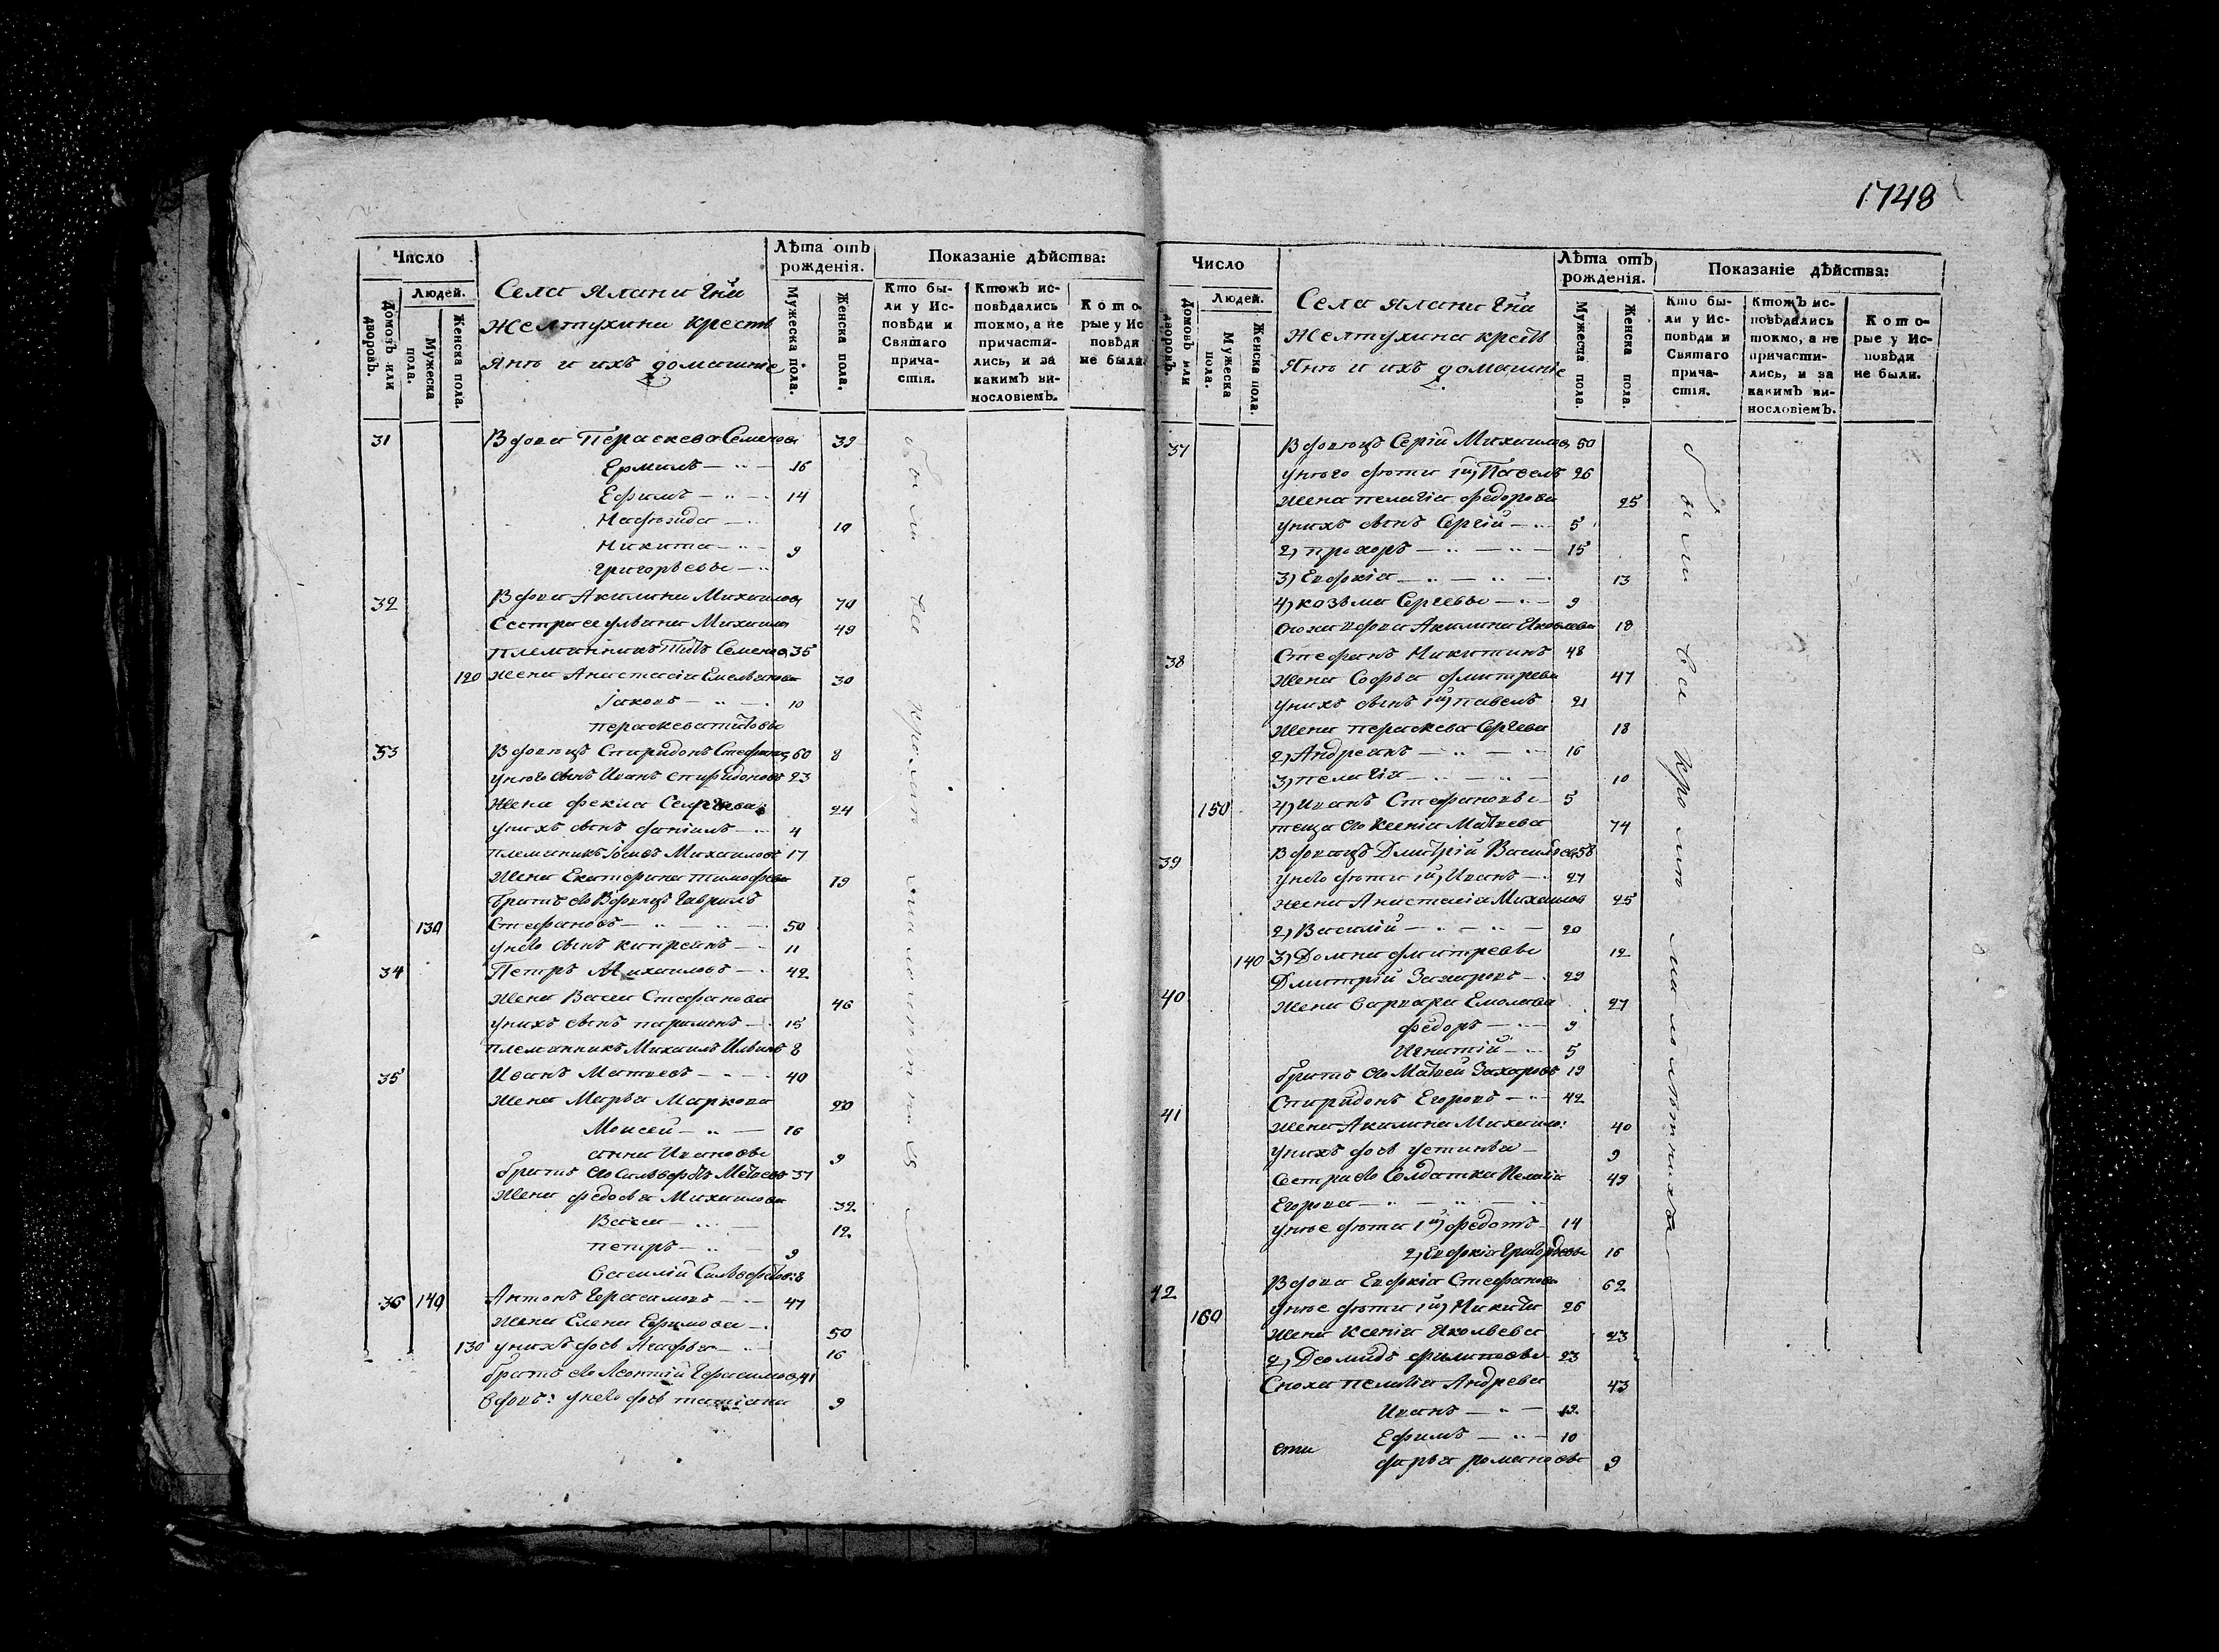 Число
Людей.
Домовъ или дворовъ.
Мужеска пола.
Женска пола.
Села
Желтухина крестъ
янѣ и ихъ домашніе
Лѣта отъ рожденія.
Мужеска пола.
Женска пола.
Показаніе дѣйства:
Кто были у Исповѣди и Святаго причастія.
Ктожъ исповѣдались токмо, а не причастились, и за какимъ винословіемъ.
Которые у Исповѣди не были.
31 Вдова Пераскева Семенова 39
Ермилъ 16
Ефимъ 14
19
Никита 9
Григорьевы
32 Вдова Акилина Михаилова 70
Сестра ее Ульяна Михаило 49
племянникъ Титъ Семеновъ 35
120 жена Анастасія Емельянова 30
Іаковъ 10
пераскева титовы
33 Вдовецъ Спиридонъ Стефановъ 60 8
у него сынъ Иванъ спиридоновъ 23
Жена фекла 24
у нихъ сынъ даніилъ 4
племянникъ Михаиловъ 17
Жена Екатерина тимофева 19
братъ его Вдовецъ Гаврилъ
130 Стефановъ 50
у него сынъ кипреянъ 11
34 Петръ Михаиловъ 42
Жена Васса Стефанова 46
у нихъ сынъ парамонъ 15
племянникъ Михаилъ Ильинъ 8
35 Иванъ Матвеевъ 40
Жена Марья Маркова 20
Моисей 16
анна Ивановы 9
братъ его Матвеевъ 37
Жена федосья Михаилова 32
Васса 12
петръ 9
василій 8
36 140 Антонъ Герасимовъ 47
Жена Елена Ефимова 50
130 у нихъ дочь Агафья 16
братъ его Леонтій Герасимовъ 41
вдовъ: у него дочь татіана 9
были вси кромѣ малолѣтнихъ
1748
Число
Людей.
Домовъ или дворовъ.
Мужеска пола.
Женска пола.
Села
Желтухина крестъ
янѣ и ихъ домашніе
Лѣта отъ рожденія.
Мужеска пола.
Женска пола.
Показаніе дѣйства:
Кто были у Исповѣди и Святаго причастія.
Ктожъ исповѣдались токмо, а не причастились, и за какимъ винословіемъ.
Которые у Исповѣди не были.
37 Вдовецъ Сергій Михаиловъ 50
у него дѣти 1й) Павелъ 26
жена пелагія федорова 25
у нихъ сынъ Сергій 5
2) прохоръ 15
3) Евдокія 13
4) козьма Сергеевы 9
сноха вдова Акилина Яковлева 18
38 Стефанъ Никитинъ 48
Жена Софья дмитрева 47
у нихъ сынъ 1й) павелъ 21
Жена пераскева Сергеева 18
2) Андреянъ 16
3) пелагія 10
150 4) Иванъ Стефановы 5
теща его Ксенія Матвеева 74
39 Вдовецъ Дмитрій Васильевъ 58
у него дѣти 1й) Иванъ 27
жена Анастасія Михаилова 25
2) Василій 20
140 3) Домна дмитревы 12
40 Дмитрій Захаровъ 29
Жена варвара 27
федоръ 9
Игнатій 5
братъ его Матвей Захаровъ 19
41 Спиридонъ Егоровъ 42
Жена Акилина Михаило: 40
у нихъ дочь устинья 9
Сестра его Солдатка Пелагія 49
Егорова
у нее дѣти 1й) федотъ 14
2) Евдокія 16
42 Вдова Евдокія Стефанова 62
160 у нее дѣти 1й) Никита 26
Жена Ксенія Яковлева 23
2) Деомидъ филиповы 23
Сноха пелагія Андрева 43
Иванъ 12
Ефимъ 10
дарья романовы 9
были вси кромѣ малолѣтнихъ